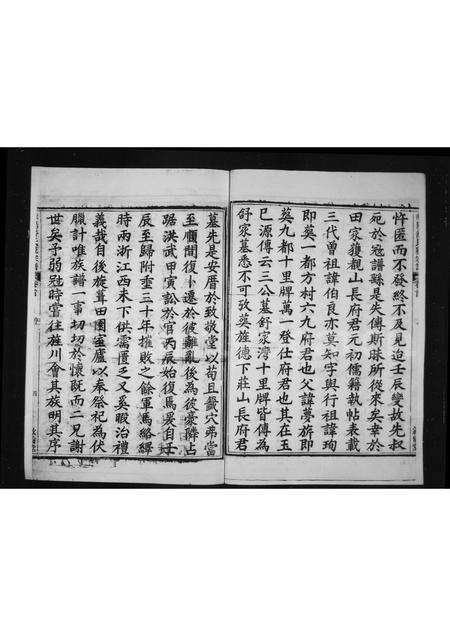 忤匿而不發終不及見迨壬辰變故先叔
宛於寇譜緜是失傳斯昧所從來矣幸於
田家獲觀山長府君元初儒籍執帖表載
三代曾祖諱伯良亦莫知字與行祖諱珣
即葵一都方村六九府君也父諱夢旂即
葵九都十里牌萬一登仕府君也其在玉
巳源傳云三公墓舒家灣十里牌皆傳為
舒家墓悉不可攷葵旌德下莊山長府君
墓先是安厝於致敬堂以筍且蟄穴弗當
至閒復卜遷於彼亂離後為彼豪隣占
踞洪武甲寅訟於官丙辰始復焉爰自壬
辰至歸附垂三十年摧敗之餘軍馬絡繹
時兩浙江西未下供需匱乏又奚暇治禮
義哉自後旋葺田園室廬以奉祭祀為伏
臘計唯族譜一事切切於懷既而二兄謝
世矣予弱冠時嘗往旌川會其族明其序